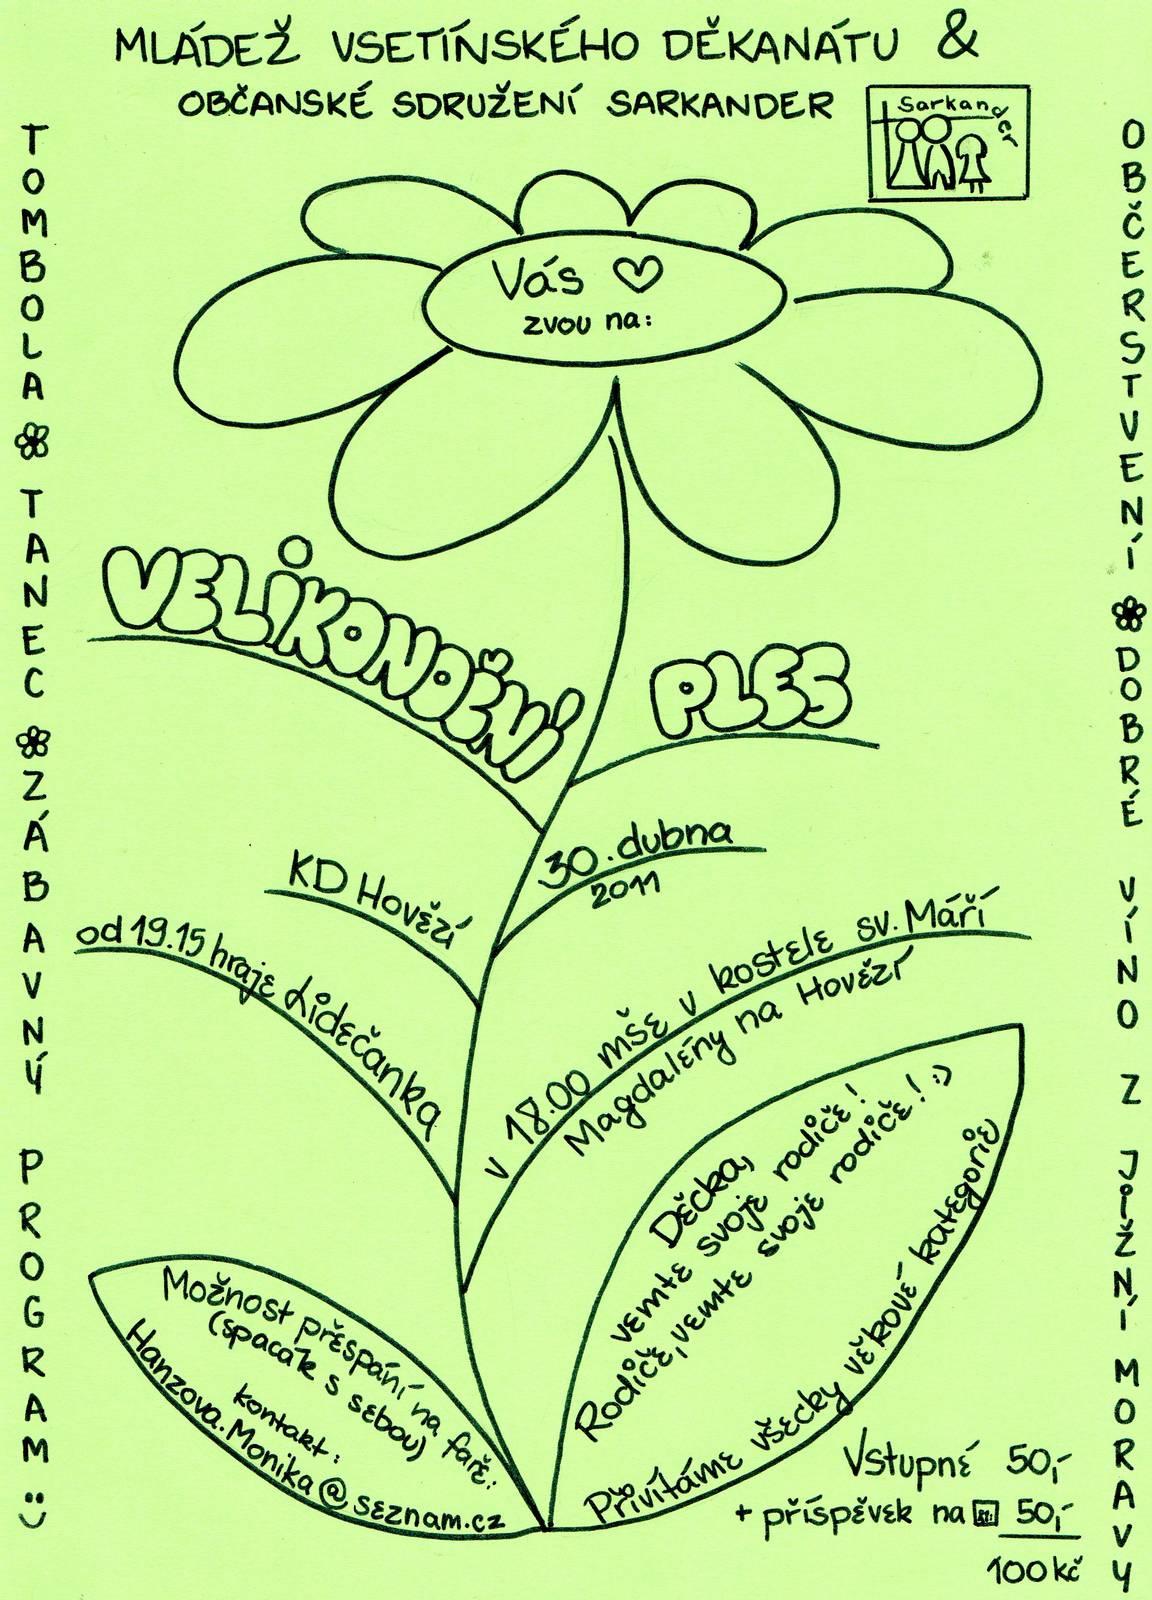 MLÁDEŽ VSETÍNSKÉHO DĚKANÁTU &
OBČANSKÉ SDRUŽENÍ SARKANDER
Sarkander
TOMBOLA TANEC ZÁBAVNÝ PROGRAM :)
OBČERSTVENÍ DOBRÉ VÍNO Z JIŽNÍ MORAVY
Vás ♡
zvou na:
VELIKONOČNÍ
PLES
30. dubna
2011
KD Hovězí
od 19.15 hraje Lidečanka
v 18.00 mše v kostele sv. Máří
Magdalény na Hovězí
Děcka,
vemte svoje rodiče!
Rodiče, vemte svoje rodiče! :)
Přivítáme všecky věkové kategorie
Možnost přespání na faře:
(spacák s sebou)
kontakt:
Hanzova.Monika@seznam.cz
Vstupné 50,-
+ příspěvek na 50,-
100 kč